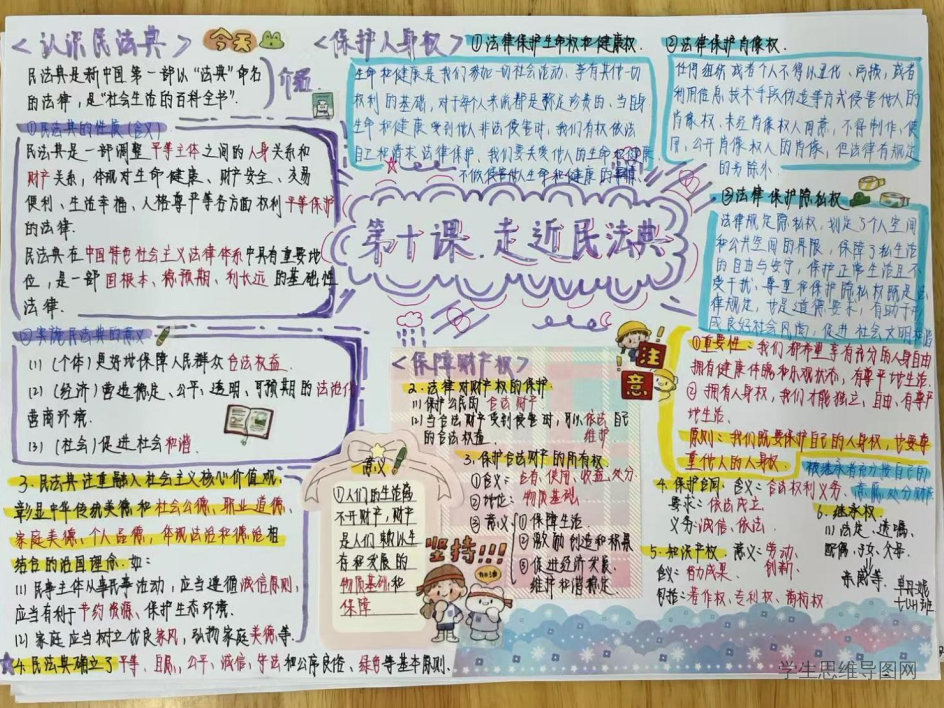 <认识民法典>
今天
民法典是新中国第一部以“法典”命名
的法律，是“社会生活的百科全书”.
介绍
①民法典的性质(含义)
民法典是一部调整平等主体之间的人身关系和
财产关系，体现对生命健康、财产安全、交易
便利、生活幸福、人格尊严等各方面权利平等保护
的法律.
民法典在中国特色社会主义法律体系中具有重要地
位，是一部固根本、稳预期、利长远的基础性
法律.
②实施民法典的意义
(1) (个体)更好地保障人民群众合法权益.
(2) (经济)营造稳定、公平、透明、可预期的法治化
营商环境.
(3) (社会)促进社会和谐.
3.民法典注重融入社会主义核心价值观,
彰显中华传统美德和社会公德、职业道德、
家庭美德、个人品德，体现法治和德治相
结合的治国理念.如:
(1)民事主体从事民事活动，应当遵循诚信原则,
应当有利于节约资源、保护生态环境.
(2)家庭应当树立优良家风，弘扬家庭美德等.
4.民法典确立了平等、自愿、公平、诚信、守法和公序良俗、绿色等基本原则.
第十课.走近民法典
<保护人身权>
①法律保护生命权和健康权.
生命和健康是我们参加一切社会活动、享有其他一切
权利的基础，对于每个人来说都是弥足珍贵的、当自身
生命和健康受到他人非法侵害时，我们有权依法
自卫和请求法律保护、我们要关爱他人的生命和健康
不做侵害他人生命和健康的事情
②法律保护肖像权.
任何组织或者个人不得以丑化、污损，或者
利用信息技术手段伪造等方式侵害他人的
肖像权、未经肖像权人同意，不得制作、使
用、公开肖像权人的肖像，但法律有规定
的另除外.
③法律保护隐私权
法律规定隐私权，划定了个人空间
和公共空间的界限，保障了私生活
的自由与安宁，保护正常生活且不
受干扰、尊重和保护隐私权既是法
律规定，也是道德要求，有助于形
成良好社会风尚，促进社会文明和谐
注意
①重要性：我们都希望享有充分的人身自由
拥有健康体魄和乐观状态，有尊严地生活.
②拥有人身权，我们才能独立、自由、有尊严
地生活.
原则：我们既要保护自己的人身权，也要尊
重他人的人身权.
<保障财产权>
2.法律对财产权的保护
(1)保护公民的合法财产
(2)当合法财产受到侵害时，可以依法维护自己
的合法权益.
3.保护合法财产的所有权
①含义：占有、使用、收益、处分
②地位：物质基础
③意义
①保障生活
②激励创造和积累
③促进经济发展、
维护和谐稳定
意义
①人们的生活离
不开财产，财产
是人们赖以生
存和发展的
物质基础和
保障
坚持!!!
加油
4.保护合同.含义：合法权利义务.
要求：依法成立
义务：诚信、依法.
5.知识产权.意义：劳动、
创新.
含义：智力成果、
包括：著作权、专利权、商标权
被继承者充分按自己的
意愿处分财产
6.继承权
(1)法定、遗嘱.
配偶、子女、父母.
亲戚等.
学生思维导图网